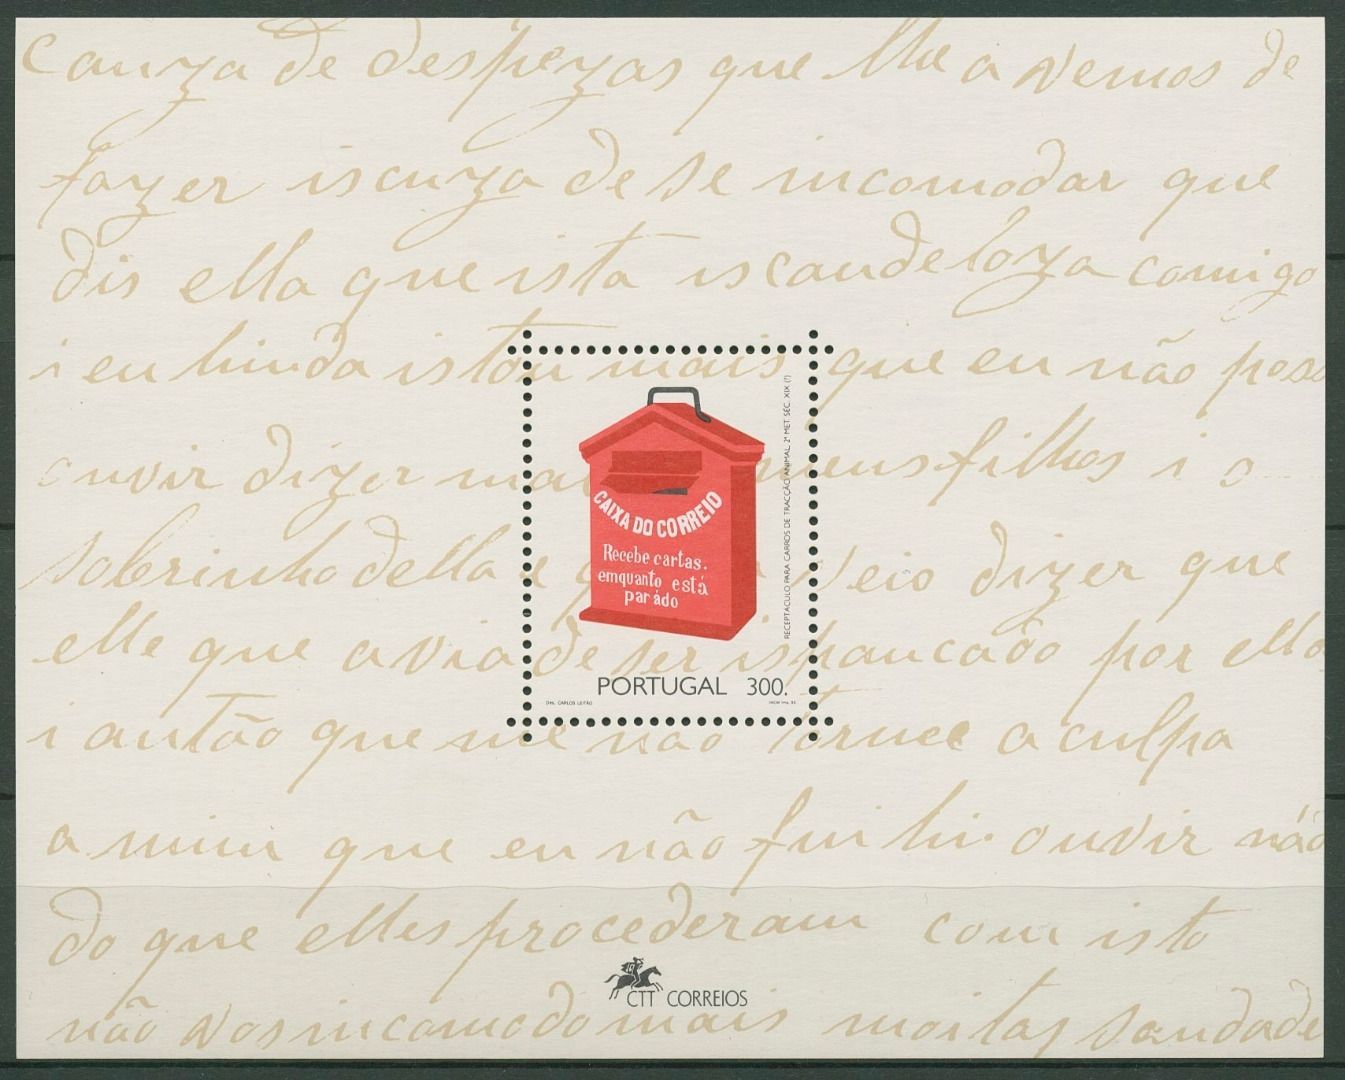 cauza de despezas que lhe a vemos de
fazer iscuza de se incomodar que
dis ella que ista iscandeloza comigo
i eu hinda istou mais que eu não poss
ouvir dizer mais meus filhos i o
sobrinho della e q seio dizer que
elle que avia de ser ispancado por ella
i antão que me não torne a culpa
a mim que eu não fui hi ouvir não
do que elles procederam com isto
não vos incomodo mais moitas saudade
CAIXA DO CORREIO
Recebe cartas.
emquanto está
parádo
RECEPTACULO PARA CARROS DE TRACÇÃO ANIMAL. 2ª MET. SÉC. XIX (?)
PORTUGAL 300.
Des. CARLOS LEITÃO
INCM Imp. 93
CTT CORREIOS